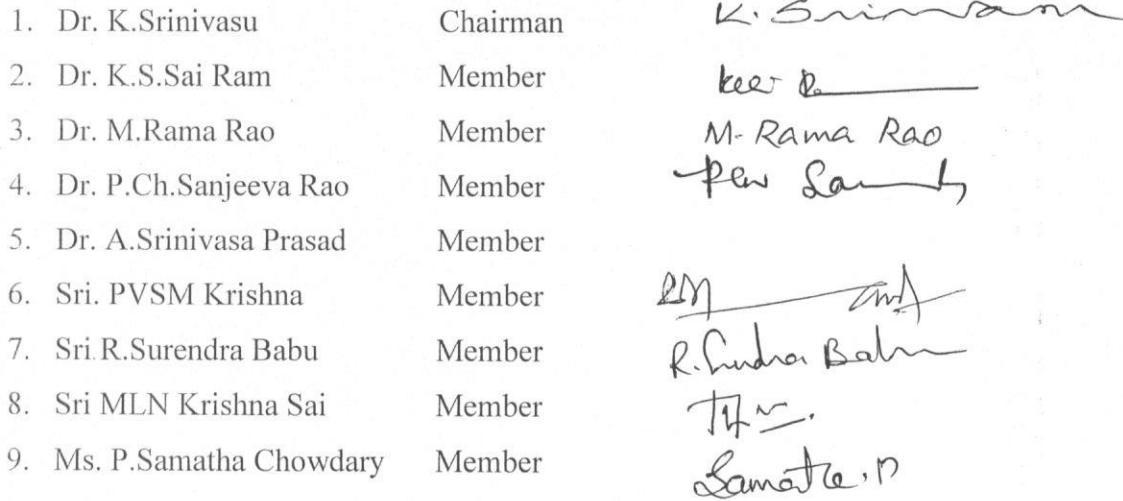 1. Dr. K.Srinivasu Chairman K. Srinivasu
2. Dr. K.S.Sai Ram Member
3. Dr. M.Rama Rao Member M- Rama Rao
4. Dr. P.Ch.Sanjeeva Rao Member
5. Dr. A.Srinivasa Prasad Member
6. Sri. PVSM Krishna Member
7. Sri.R.Surendra Babu Member R. Sundra Babu
8. Sri MLN Krishna Sai Member
9. Ms. P.Samatha Chowdary Member Samatha.P